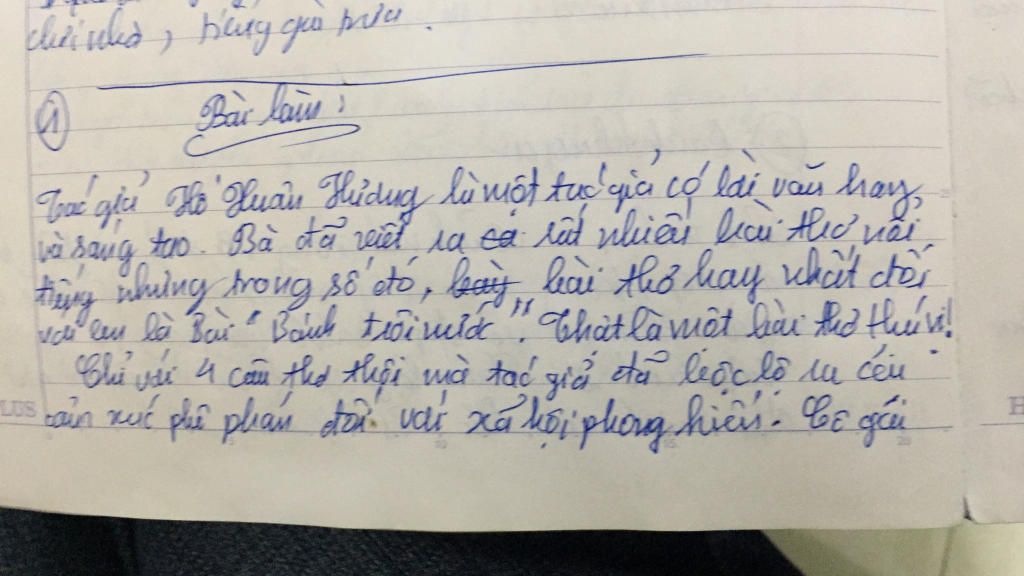 chơi nhà, tiếng gà trưa.
① Bài làm:
Tác giả Hồ Xuân Hương là một tác giả có lời văn hay,
và sáng tạo. Bà đã viết ra rất nhiều bài thơ nổi
tiếng nhưng trong số đó, bài thơ hay nhất đối
với em là Bài "Bánh trôi nước". Thật là một bài thơ thú vị!
Chỉ với 4 câu thơ thôi mà tác giả đã bộc lộ ra cái
cảm xúc phê phán đối với xã hội phong kiến. Cô gái
PLUS
H